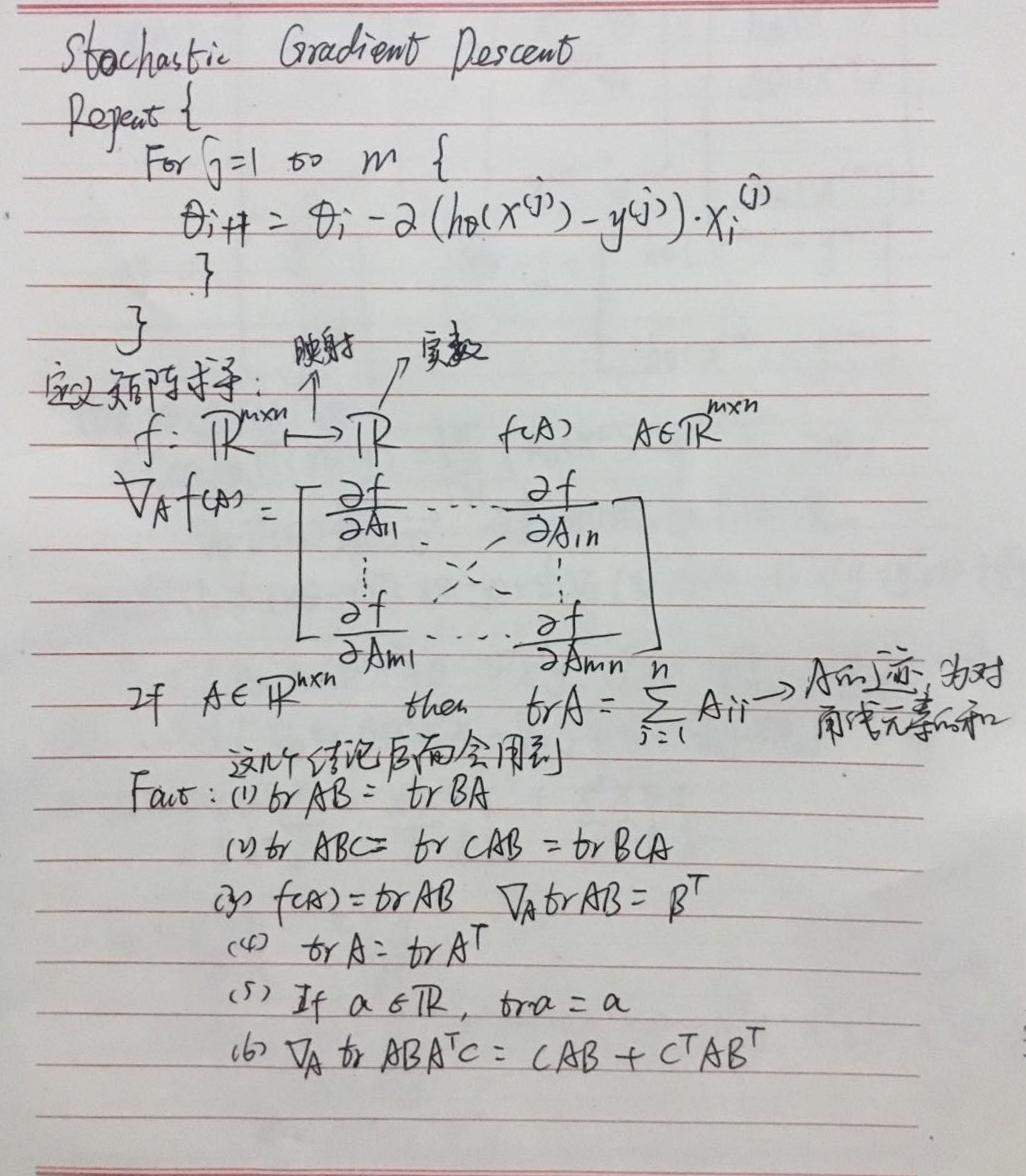 Stochastic Gradient Descent
Repeat {
For j=1 to m {
θi+1 = θi - α (hθ(x^(j)) - y^(j)) · xi^(j)
}
}
映射 实数
定义矩阵求导:
f: ℝ^(m×n) ↦ ℝ f(A) A∈ℝ^(m×n)
∇A f(A) = [ ∂f/∂A11 ····· ∂f/∂A1n
⋮ ⋮
∂f/∂Am1 ····· ∂f/∂Amn ]
If A∈ℝ^(n×n) then trA = Σ_(i=1)^n Aii → A的迹, 为对
角线元素的和
这几个结论后面会用到
Fact: (1) tr AB = tr BA
(2) tr ABC = tr CAB = tr BCA
(3) f(A) = tr AB ∇A tr AB = B^T
(4) tr A = tr A^T
(5) If a ∈ ℝ, tr a = a
(6) ∇A tr ABA^TC = CAB + C^TAB^T